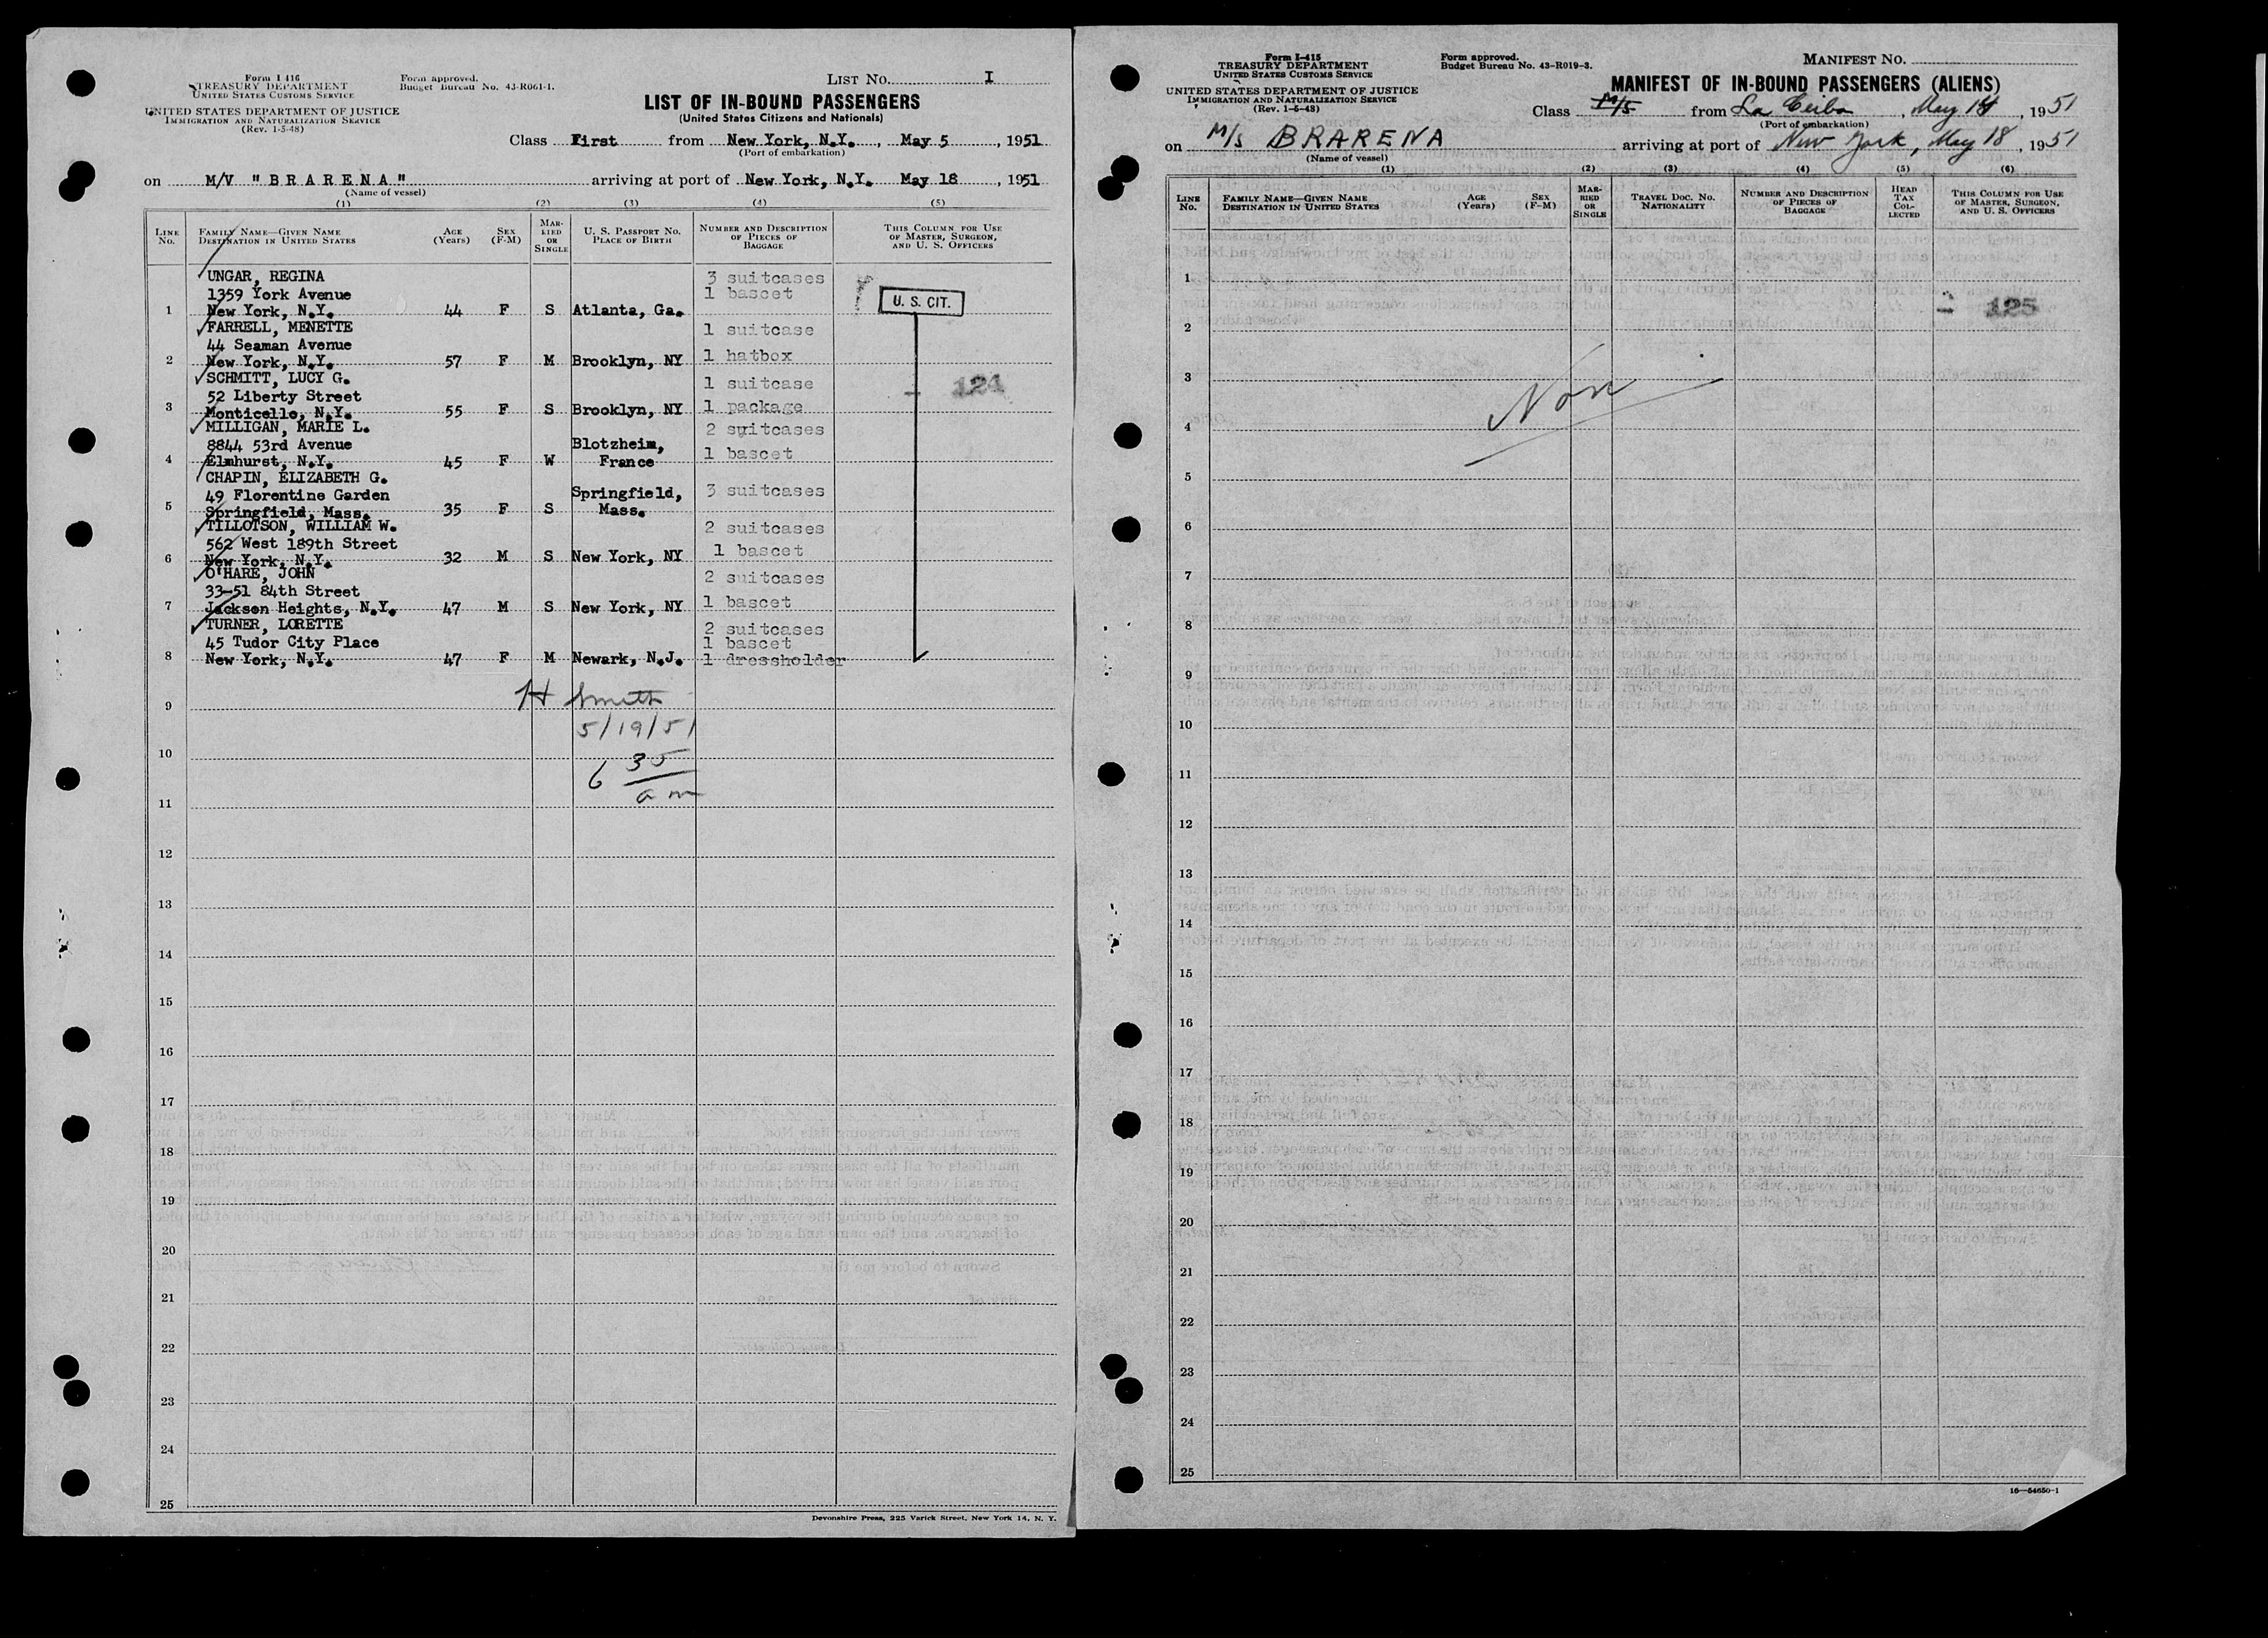 Form I 416
TREASURY DEPARTMENT
UNITED STATES CUSTOMS SERVICE
UNITED STATES DEPARTMENT OF JUSTICE
IMMIGRATION AND NATURALIZATION SERVICE
(Rev. 1-5-48)
Form approved.
Budget Bureau No. 43-R061-1.
LIST NO. I
LIST OF IN-BOUND PASSENGERS
(United States Citizens and Nationals)
Class First from New York, N.Y., May 5, 1951
(Port of embarkation)
on M/V "BRARENA" arriving at port of New York, N.Y. May 18, 1951
(Name of vessel)
(1) (2) (3) (4) (5)
LINE NO.
FAMILY NAME—GIVEN NAME
DESTINATION IN UNITED STATES
AGE (Years)
SEX (F-M)
MARRIED OR SINGLE
U. S. PASSPORT NO.
PLACE OF BIRTH
NUMBER AND DESCRIPTION OF PIECES OF BAGGAGE
THIS COLUMN FOR USE OF MASTER, SURGEON, AND U. S. OFFICERS
UNGAR, REGINA 3 suitcases
1359 York Avenue 1 bascet U. S. CIT.
1 New York, N.Y. 44 F S Atlanta, Ga.
FARRELL, MENETTE 1 suitcase
44 Seaman Avenue
2 New York, N.Y. 57 F M Brooklyn, NY 1 hatbox
SCHMITT, LUCY G. 1 suitcase 124
52 Liberty Street
3 Monticello, N.Y. 55 F S Brooklyn, NY 1 package
MILLIGAN, MARIE L. 2 suitcases
8844 53rd Avenue Blotzheim,
4 Elmhurst, N.Y. 45 F W France 1 bascet
CHAPIN, ELIZABETH G.
49 Florentine Garden Springfield, 3 suitcases
5 Springfield, Mass. 35 F S Mass.
TILLOTSON, WILLIAM W. 2 suitcases
562 West 189th Street
6 New York, N.Y. 32 M S New York, NY 1 bascet
O'HARE, JOHN 2 suitcases
33-51 84th Street
7 Jackson Heights, N.Y. 47 M S New York, NY 1 bascet
TURNER, LORETTE 2 suitcases
45 Tudor City Place 1 bascet
8 New York, N.Y. 47 F M Newark, N.J. 1 dressholder
H Smith
9
5/19/51
10
6 35
am
11
12
13
14
15
16
17
18
19
20
21
22
23
24
25
Devonshire Press, 225 Varick Street, New York 14, N. Y.
Form I-415
TREASURY DEPARTMENT
UNITED STATES CUSTOMS SERVICE
UNITED STATES DEPARTMENT OF JUSTICE
IMMIGRATION AND NATURALIZATION SERVICE
(Rev. 1-5-48)
Form approved.
Budget Bureau No. 43-R019-3.
MANIFEST NO.
MANIFEST OF IN-BOUND PASSENGERS (ALIENS)
Class M/S from La Ceiba, May 14, 1951
(Port of embarkation)
on M/S BRARENA arriving at port of New York, May 18, 1951
(Name of vessel)
(1) (2) (3) (4) (5) (6)
LINE NO.
FAMILY NAME—GIVEN NAME
DESTINATION IN UNITED STATES
AGE (Years)
SEX (F-M)
MARRIED OR SINGLE
TRAVEL DOC. NO.
NATIONALITY
NUMBER AND DESCRIPTION OF PIECES OF BAGGAGE
HEAD TAX COLLECTED
THIS COLUMN FOR USE OF MASTER, SURGEON, AND U. S. OFFICERS
1
125
2
3
Non
4
5
6
7
8
9
10
11
12
13
14
15
16
17
18
19
20
21
22
23
24
25
16—54650-1